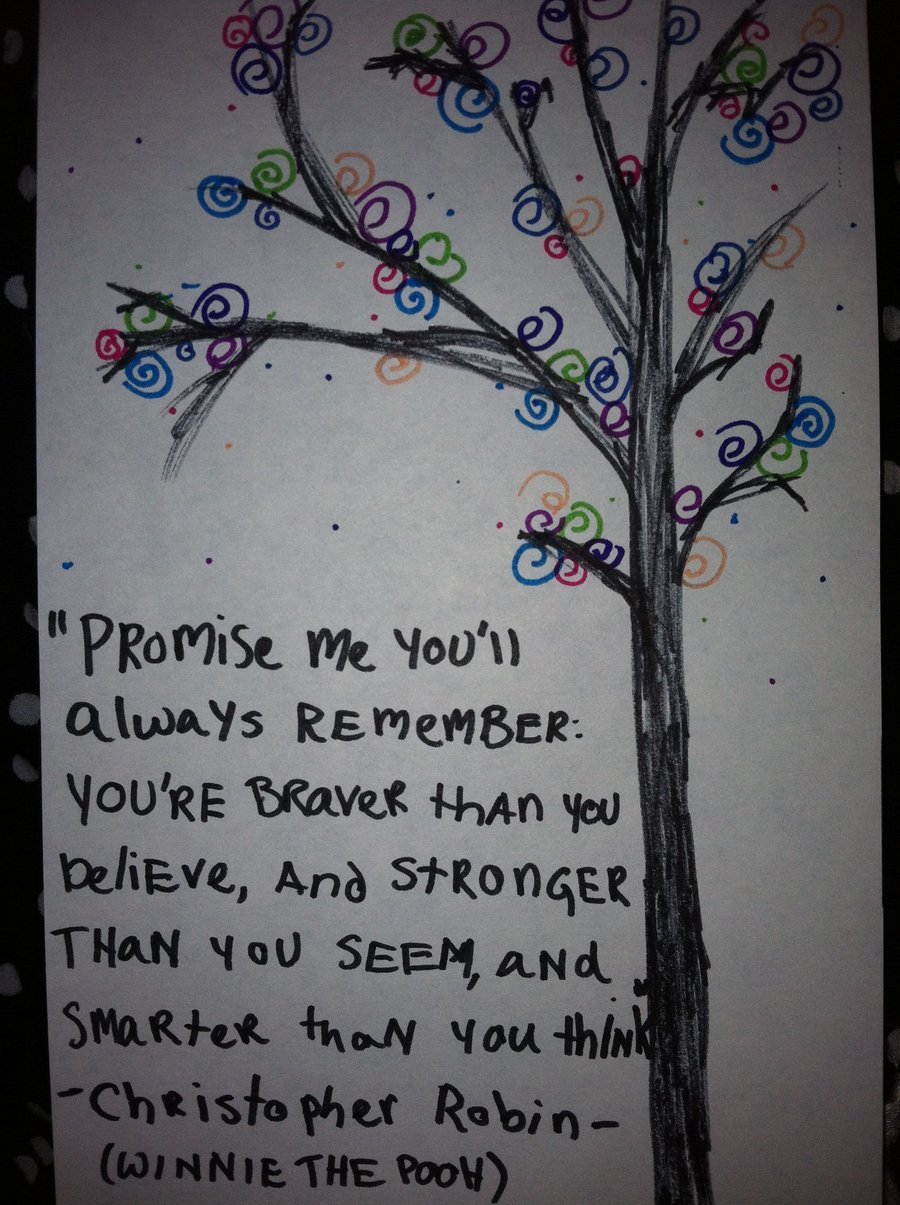 "PROMISE ME YOU'll
always REMEMBER:
YOU'RE BRAVER thAN you
beliEve, And StRONGER
THaN YOU SEEM, aND
SmaRtER thaN you thINK"
-ChRistopher Robin-
(WINNIE THE POOH)